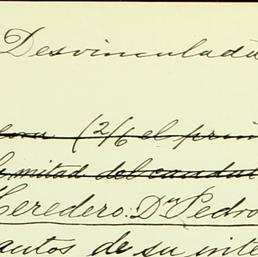 Desvinculada
(2/6 el
mitad del caudal
Heredero: Dn Pedro
autos de su inte